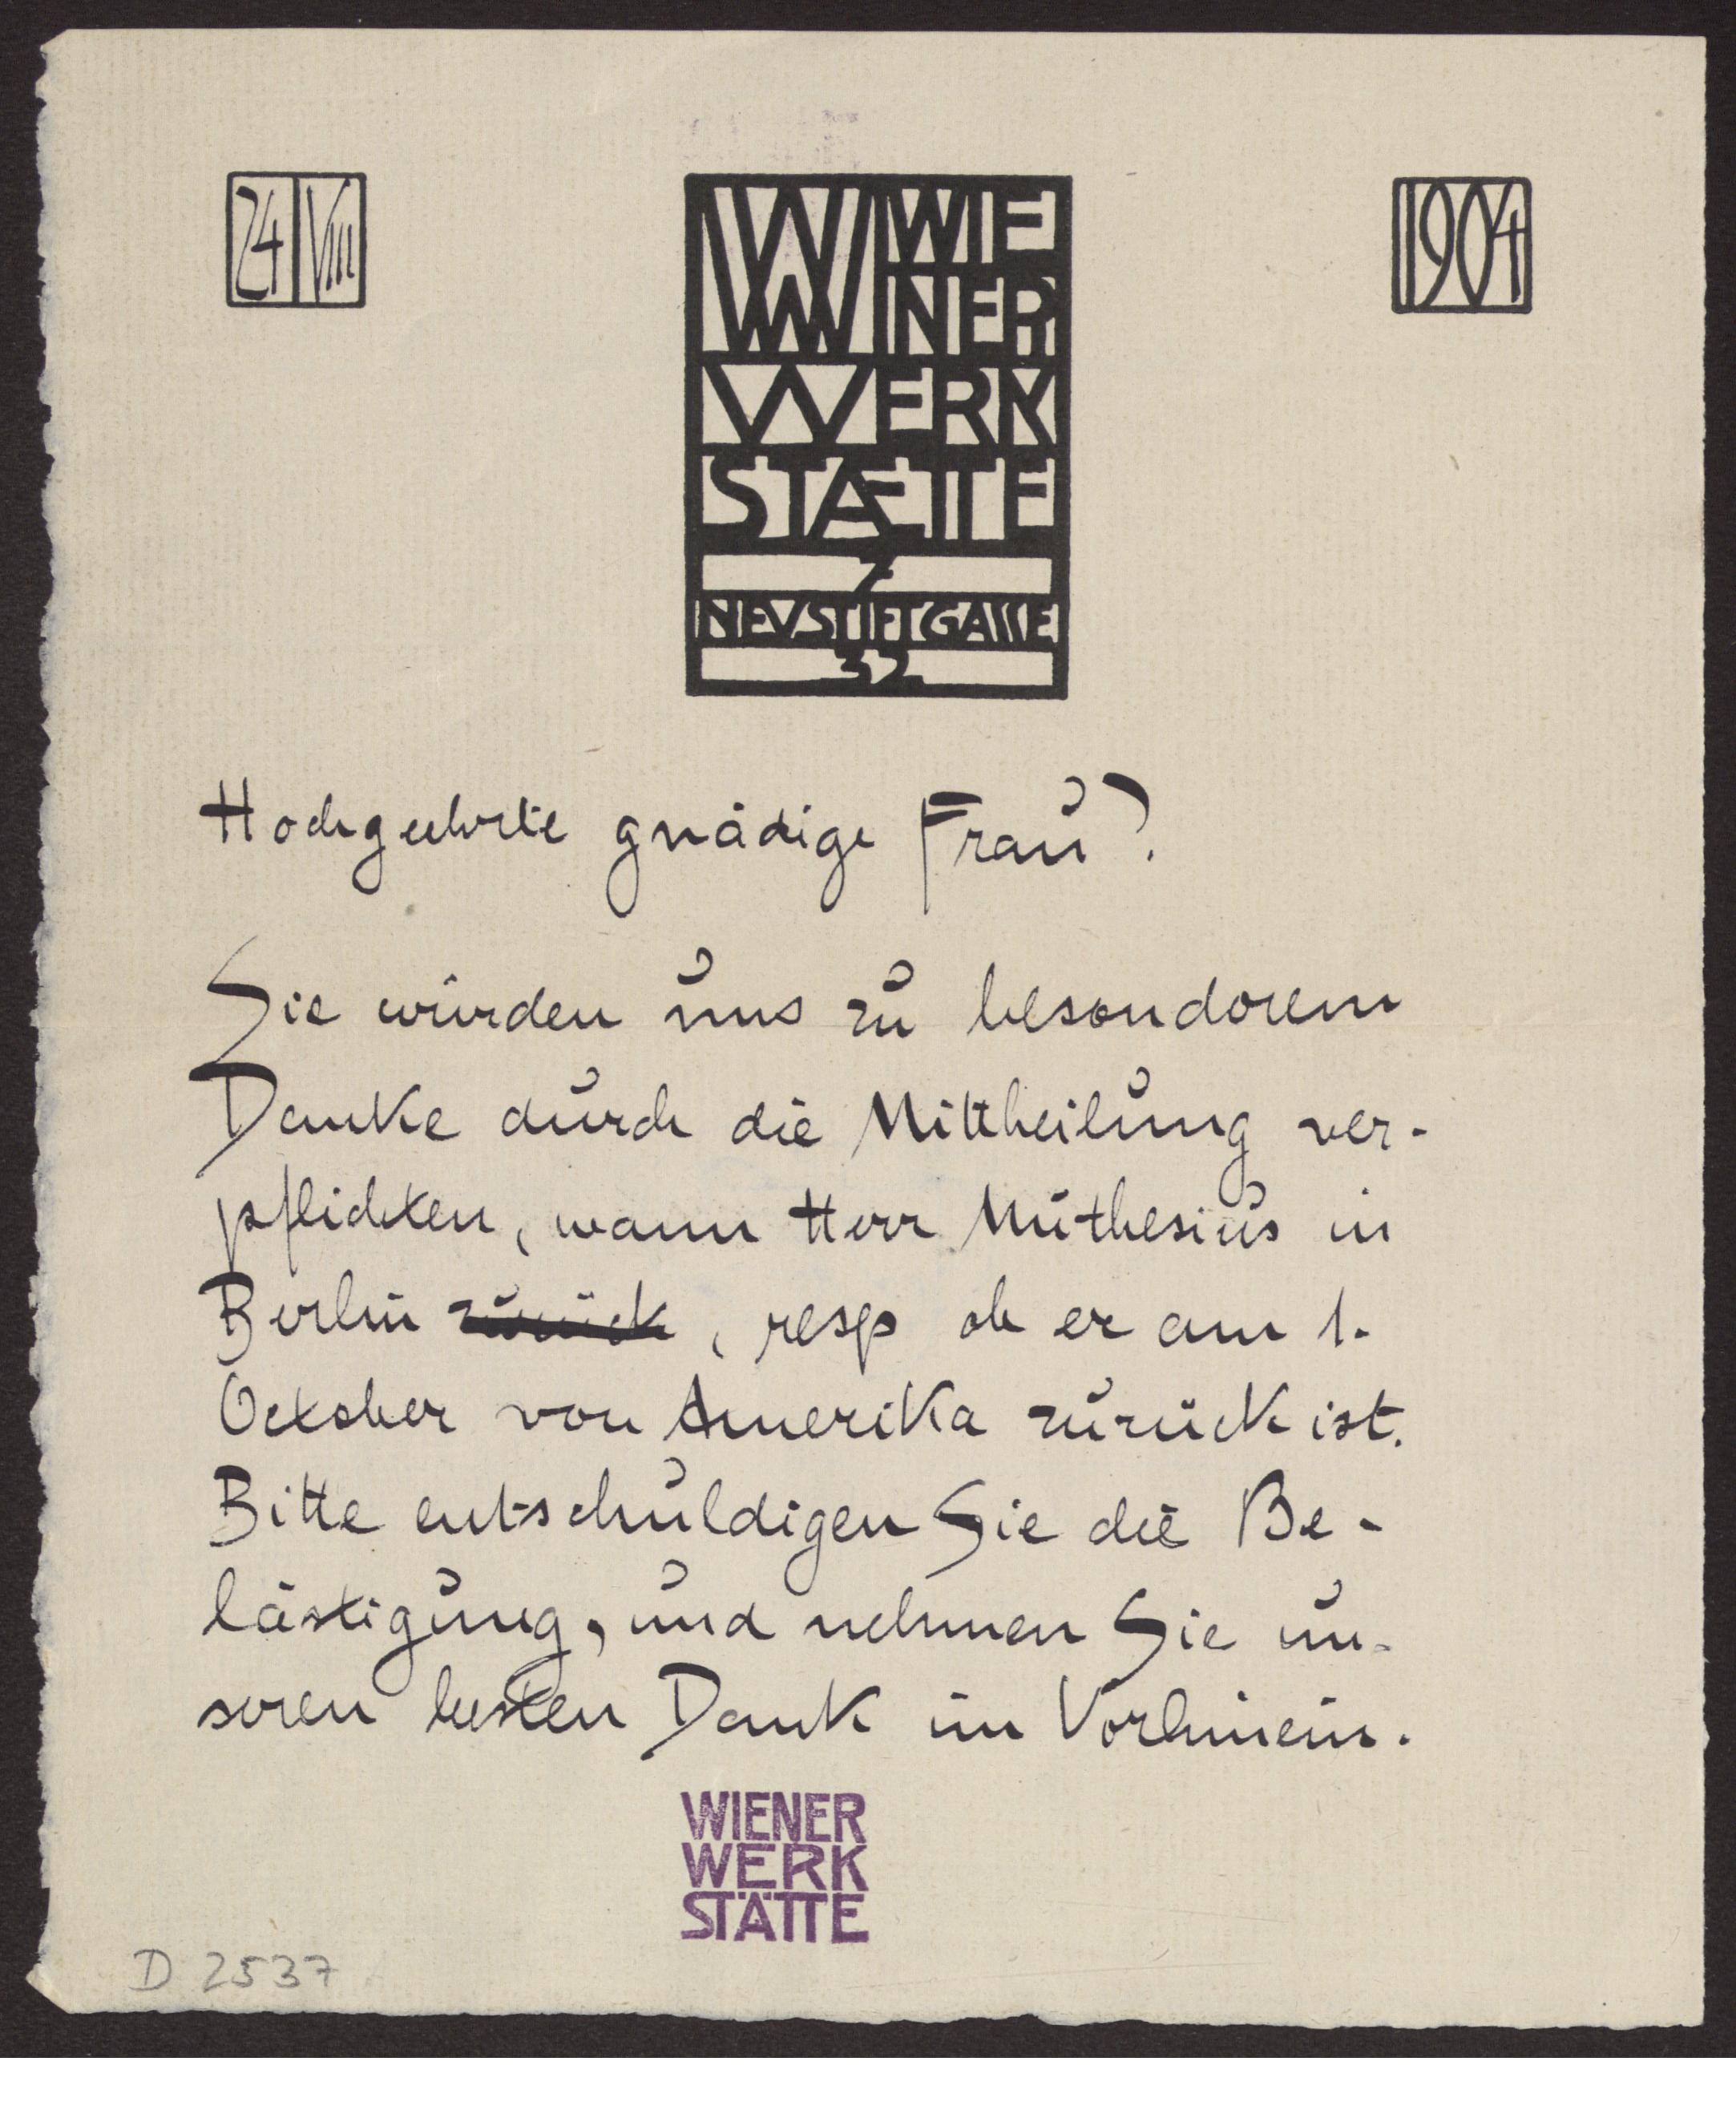 24 VIII
1904
WW WIE
NER
WERK
STÆTTE
7
NEUSTIFTGASSE
32
Hochgeehrte gnädige Frau!
Sie würden uns zu besonderem
Danke durch die Mittheilung ver-
pflichten, wann Herr Muthesius in
Berlin zurück, resp ob er am 1.
October von Amerika zurück ist.
Bitte entschuldigen Sie die Be-
lästigung, und nehmen Sie un-
seren besten Dank im Vorhinein.
WIENER
WERK
STÄTTE
D 2537